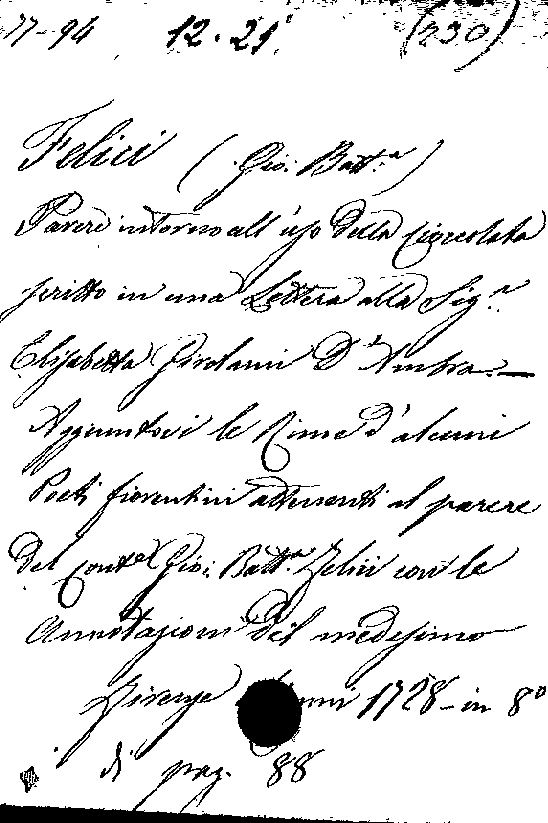 77-94 12.21. (230)
Felici (Gio: Batt.a)
Parere intorno all'uso della Cioccolata
scritto in una Lettera alla Sig.ra
Elisabetta Girolami D'Ambra.—
Aggiuntovi le Rime d'alcuni
Poeti fiorentini attenenti al parere
del Conte Gio: Batt.a Felici con le
Annotazioni del medesimo
Firenze 1728 - in 8°
di pag. 88